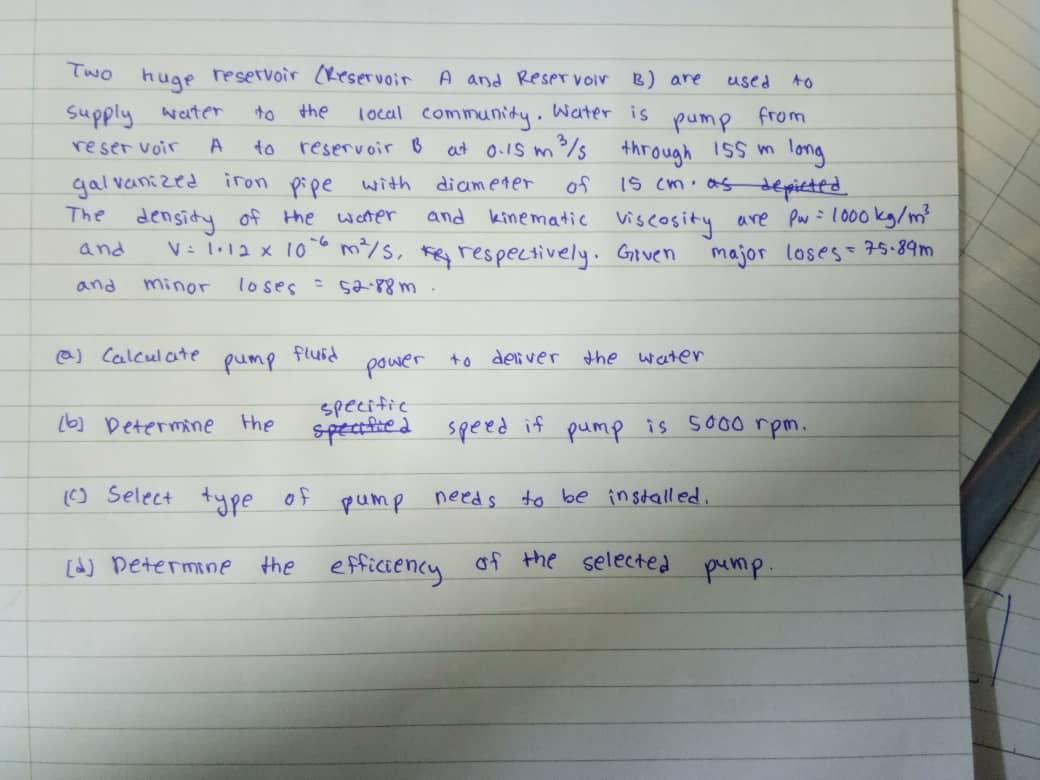 Two huge reservoir (Reservoir A and Reservoir B) are used to
supply water to the local community. Water is pump from
reservoir A to reservoir B at 0.15 m³/s through 155 m long
galvanized iron pipe with diameter of 15 cm. as depicted
The density of the water and kinematic viscosity are Pw = 1000 kg/m³
and V = 1.12 x 10⁻⁶ m²/s, respectively. Given major loses = 75.89m
and minor loses = 52.88m.
(a) Calculate pump fluid power to deliver the water
specific
(b) Determine the specified speed if pump is 5000 rpm.
(c) Select type of pump needs to be installed.
(d) Determine the efficiency of the selected pump.